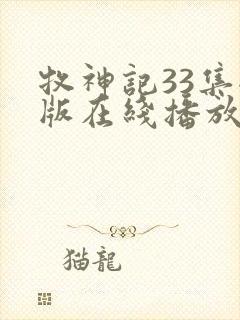 牧神記33集
版在綫播放
猫龍